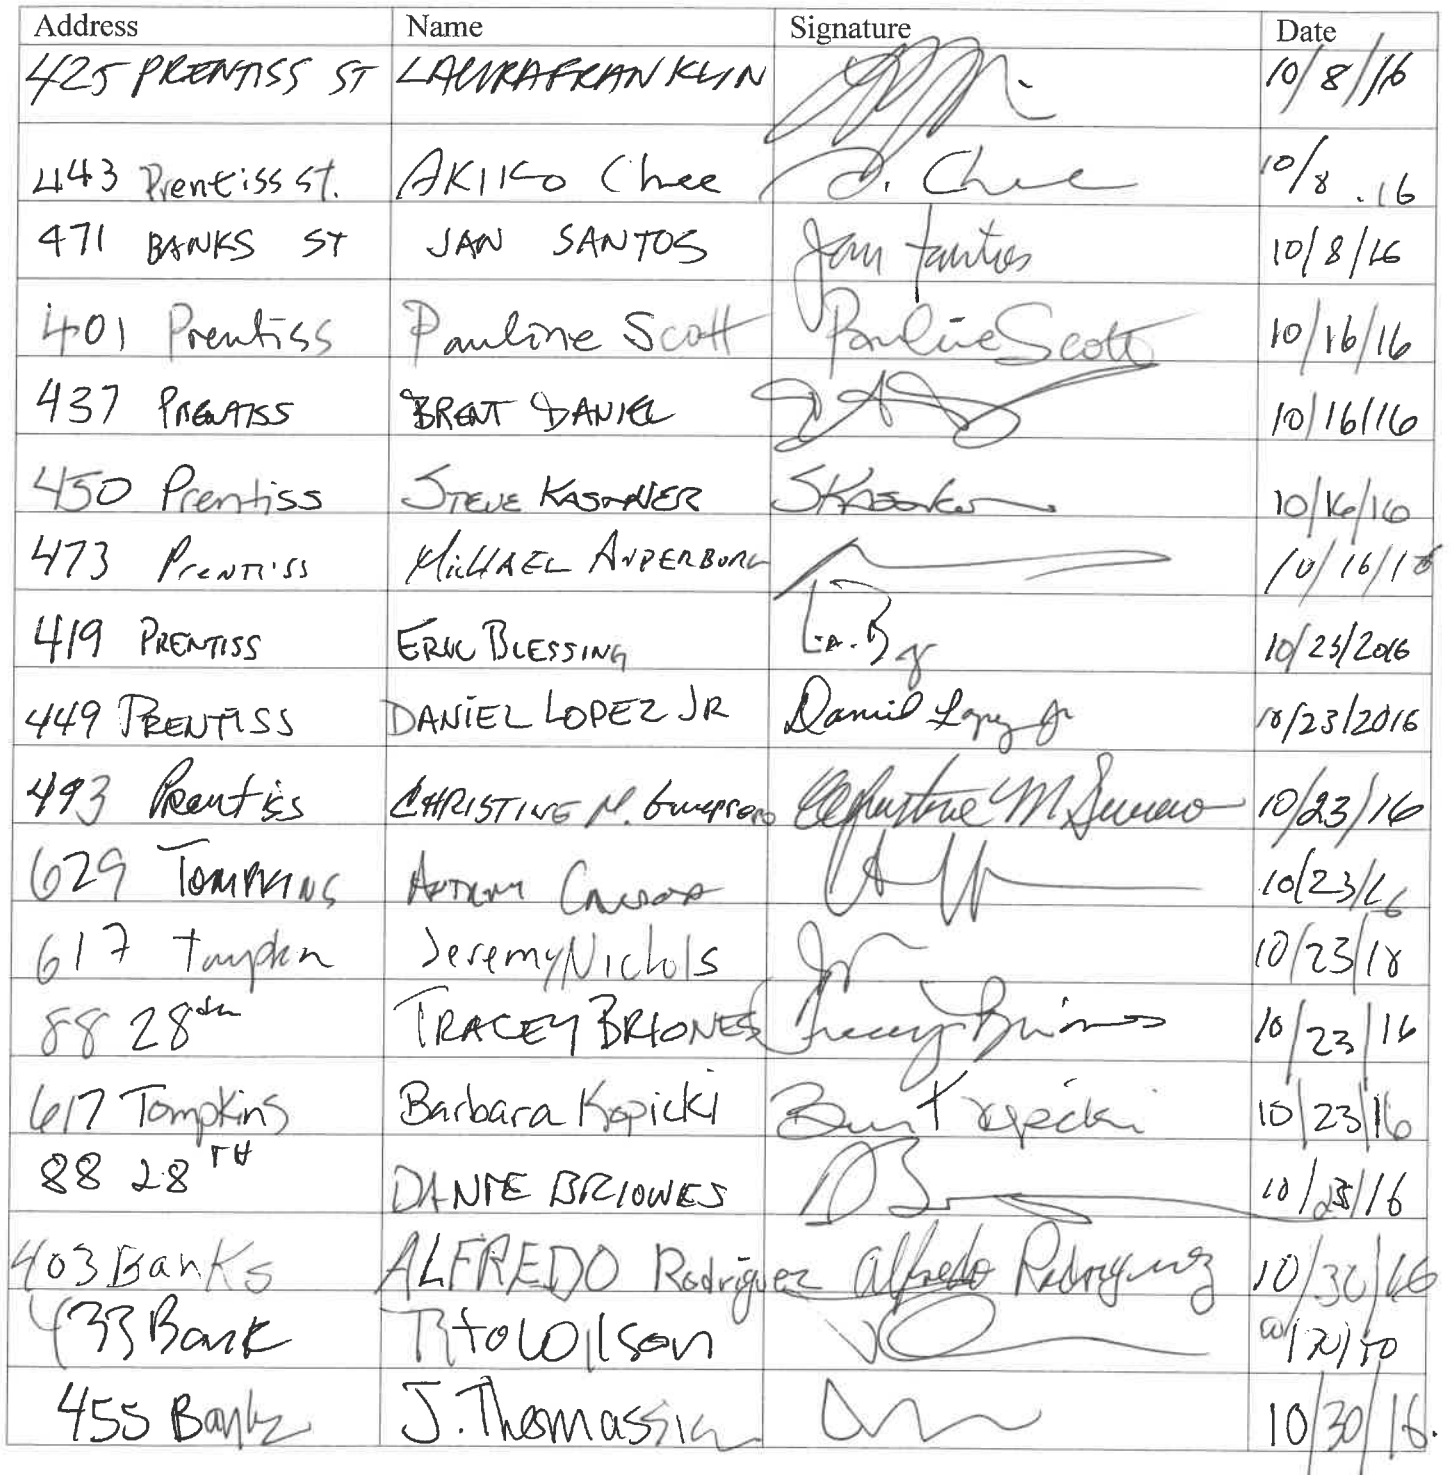 Address Name Signature Date
425 PRENTISS ST LAURA FRANKLIN 10/8/16
443 Prentiss St. AKIKO Chee A. Chee 10/8.16
471 BANKS ST JAN SANTOS Jan Santos 10/8/16
401 Prentiss Pauline Scott Pauline Scott 10/16/16
437 PRENTISS BRENT DANIEL 10/16/16
450 Prentiss STEVE 10/16/16
473 PRENTISS MICHAEL 10/16/16
419 PRENTISS ERIC BLESSING 10/23/2016
449 PRENTISS DANIEL LOPEZ JR Daniel Lopez Jr 10/23/2016
493 Prentiss CHRISTINE M. Christine M 10/23/16
629 TOMPKINS 10/23/16
617 Jeremy Nichols 10/23/18
88 28th TRACEY BRIONES Tracey Briones 10/23/16
617 Tompkins Barbara Kopicki Kopicki 10/23/16
88 28TH DANTE BRIONES 10/23/16
403 Banks ALFREDO Rodriguez Alfredo Rodriguez 10/30/16
433 Bank Tito Wilson
455 Banks J. Thomassin 10/30/16.